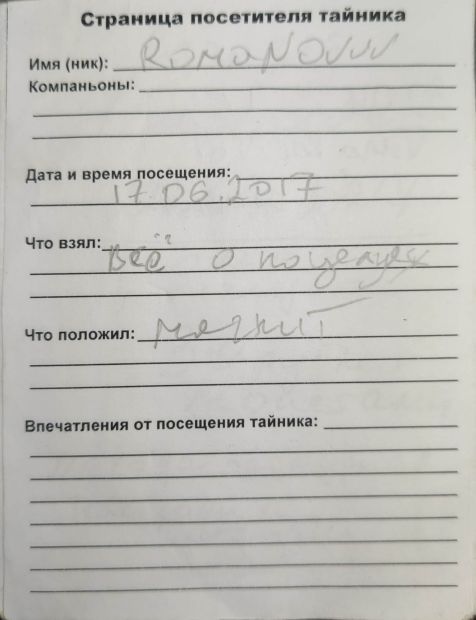 Страница посетителя тайника
Имя (ник): ROMANOVVV
Компаньоны:
Дата и время посещения:
17.06.2017
Что взял:
Всё о поцелуях
Что положил: магнит
Впечатления от посещения тайника: